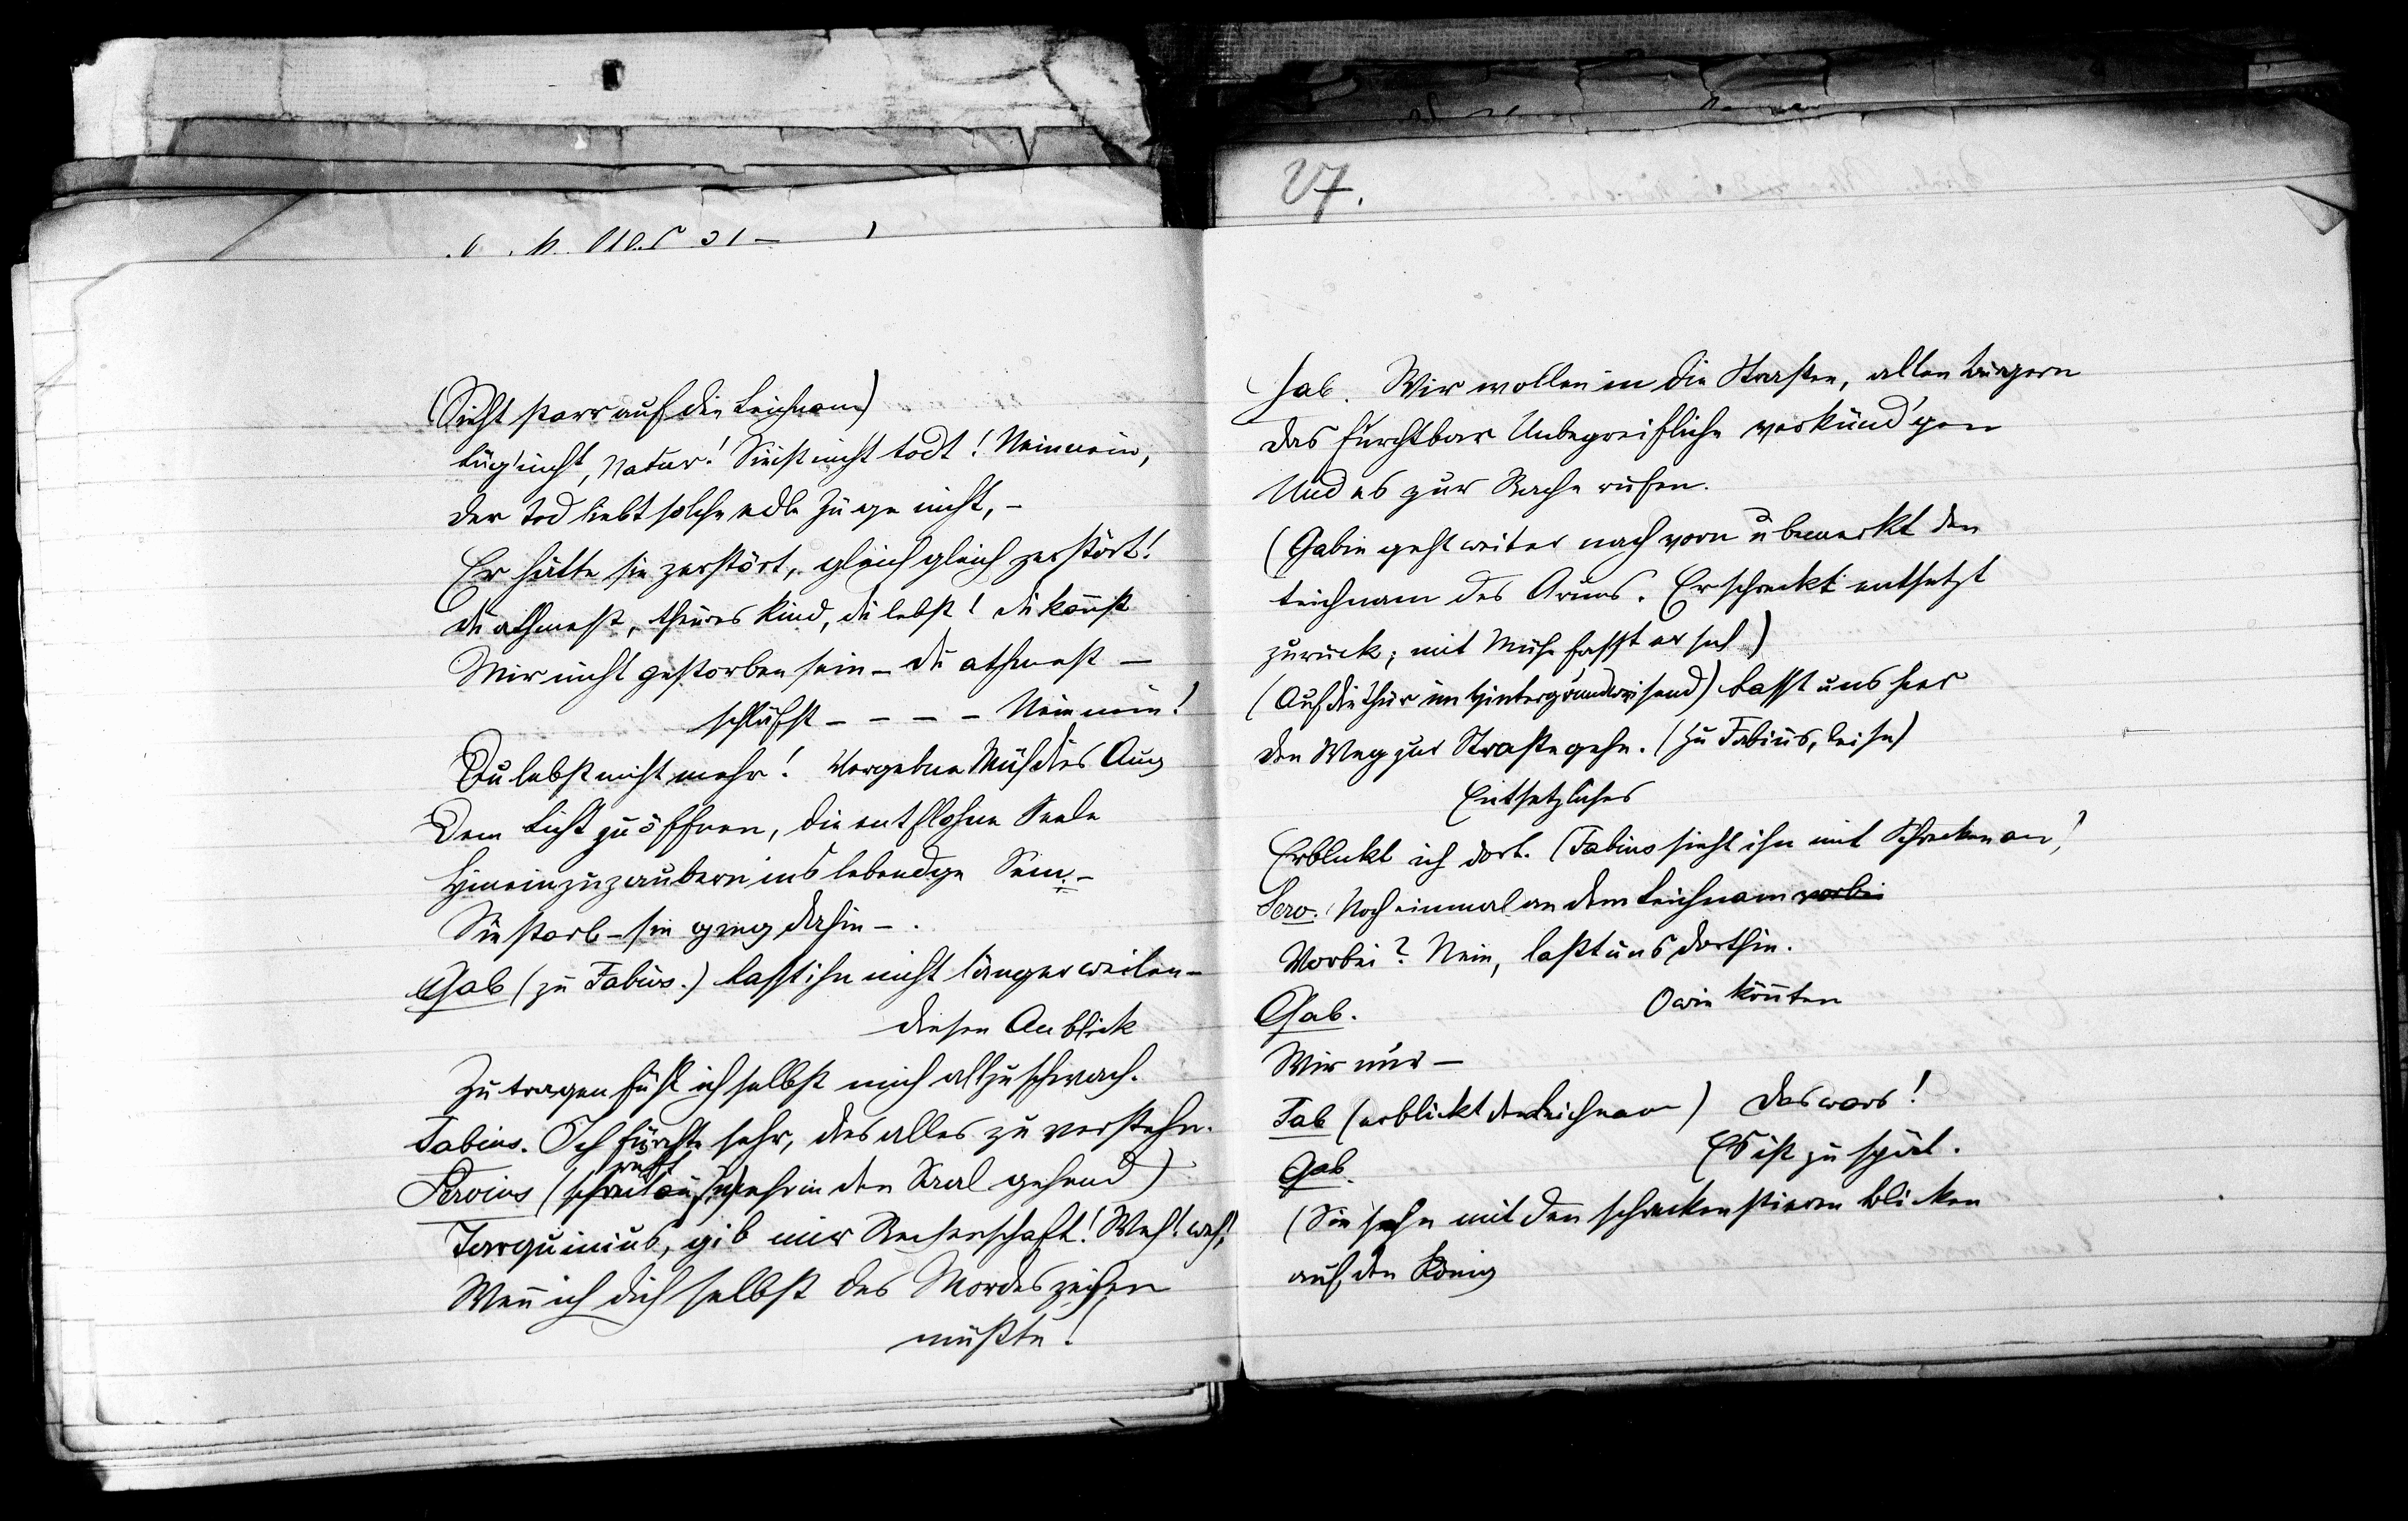 (Sieht starr auf die Leichnam)
Lüg' nicht, Natur! Sie ist nicht todt! Nein nein,
Der Tod liebt solche edle Züge nicht, –
Er hätte sie zerstört, gleich gleich zerstört!
Du athmest, theures Kind, du lebst! Du kannst
Mir nicht gestorben sein – du athmest –
schläfst – – – – Nein nein!
Du lebst nicht mehr! Vergebne Müh dies Aug
Dem Licht zu öffnen, die entflohne Seele
Hineinzuzaubern ins lebendge Sein. –
Sie starb – sie ging dahin – .
Gab (zu Fabius.) Lasst ihn nicht länger weilen –
diesen Anblick
Zu tragen fühl ich selbst mich allzuschwach.
Fabius. Ich fürchte sehr, dies alles zu verstehn.
ruft
Servius (schreit aus, mehr in den Saal gehend)
Tarquinius, gib mir Rechenschaft! Weh! weh!
Wenn ich dich selbst des Mordes zeihen
müßte!
27.
Gab. Wir wollen in die Strassen, allen Bürgern
Das furchtbar Unbegreifliche verkünd'gen
Und es zur Rache rufen.
(Gabin geht weiter nach vorn u bemerkt den
Leichnam des Aruns. Er schreckt entsetzt
zurück; mit Mühe fasst er sich)
(Auf die Thür im Hintergrund weisend) Lasst uns hier
Den Weg zur Strasse gehn. (Zu Fabius, leise)
Entsetzliches
Erblickt ich dort. (Fabius sieht ihn mit Schrecken an)
Serv. Noch einmal an dem Leichnam vorbei
Vorbei? Nein, laßt uns dorthin.
Gab. O wie könnten
Wir nur –
Fab (erblickt den Leichnam) Das wars!
Gab. Es ist zu spät.
(Sie sehn mit den schreckenstieren Blicken
auf den König